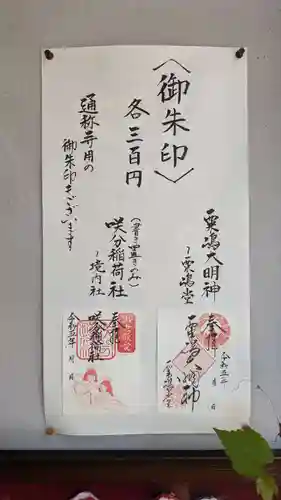 〈御朱印〉
各三百円
通称寺用の
御朱印もございます
粟嶋大明神
〜粟嶋堂
(書き置きのみ)
咲分稲荷社
〜境内社
奉拝
粟嶋大明神
粟嶋堂
令和五年 月 日
奉拝
咲分稲荷社
令和五年 月 日